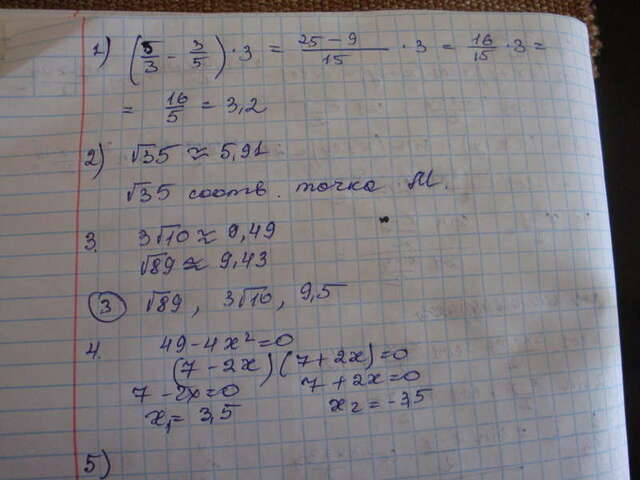 1) (5/3 - 3/5) · 3 = (25 - 9)/15 · 3 = 16/15 · 3 =
= 16/5 = 3,2
2) √35 ≈ 5,91
√35 соотв. точка М.
3. 3√10 ≈ 9,49
√89 ≈ 9,43
③ √89, 3√10, 9,5
4. 49 - 4x² = 0
(7 - 2x)(7 + 2x) = 0
7 - 2x = 0 7 + 2x = 0
x₁ = 3,5 x₂ = -3,5
5)